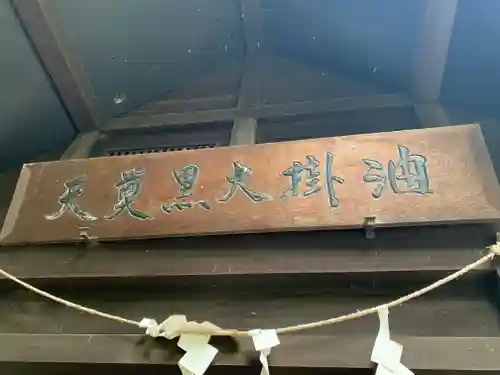 油掛大黒奠天